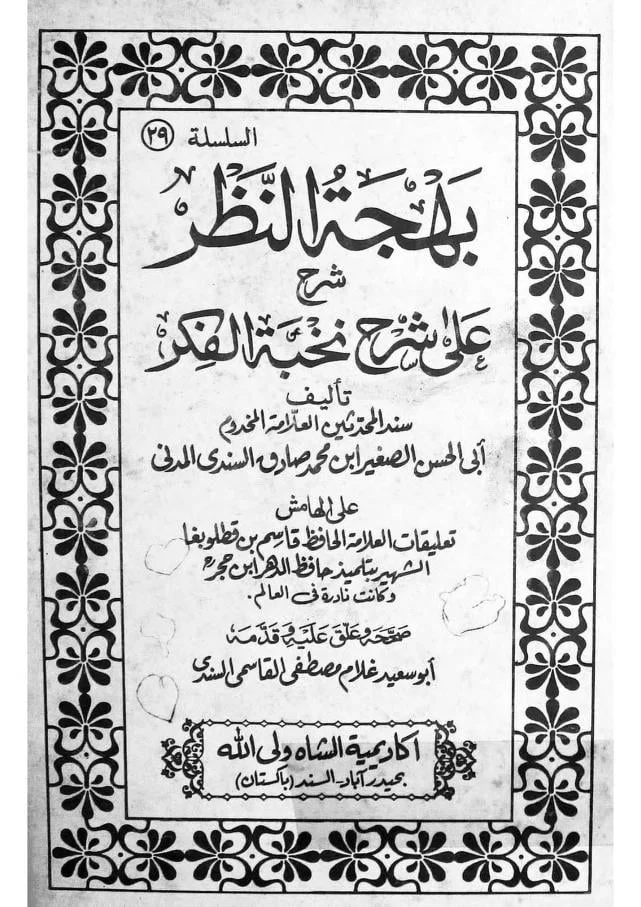 السلسلة ٢٩
بَهْجَةُ النَّظَر
شرح
عَلىٰ شرح نخبة الفِكر
تأليف
سند المحدّثين العلّامة المخدوم
أبي الحسن الصغير ابن محمد صادق السندى المدنى
على الهامش
تعليقات العلامة الحافظ قاسم بن قطلوبغا
الشهير بتلميذ حافظ الدهر ابن حجر
وكانت نادرة فى العالم.
صَحّحَه وَعَلّق عَلَيْهِ وَقَدَّمَه
أبو سعيد غلام مصطفى القاسمى السندى
اكاديمية الشاه ولى الله
بحيدر آباد-السند (باكستان)